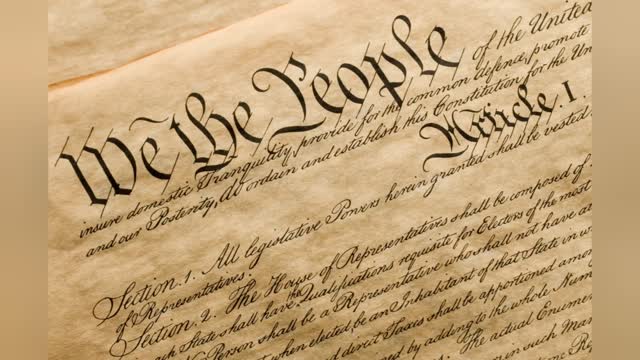 We the People of the United
insure domestic Tranquility, provide for the common defence, promote
and our Posterity, do ordain and establish this Constitution for the Uni
Article. I.
Section. 1. All legislative Powers herein granted shall be vested
of Representatives.
Section. 2. The House of Representatives shall be composed of
ach State shall have the Qualifications requisite for Electors of the most
Person shall be a Representative who shall not have at
when elected be an Inhabitant of that State in w
direct Taxes shall be apportioned amon
by adding to the whole Num
The actual Enumer
in such Man